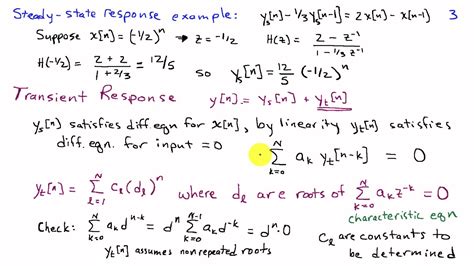 Steady-state response example: yₛ[n] - 1/3 yₛ[n-1] = 2x[n] - x[n-1] 3
Suppose x[n] = (-1/2)ⁿ → z = -1/2 H(z) = (2 - z⁻¹)/(1 - 1/3 z⁻¹)
H(-1/2) = (2 + 2)/(1 + 2/3) = 12/5 so yₛ[n] = 12/5 (-1/2)ⁿ
Transient Response y[n] = yₛ[n] + yₜ[n]
yₛ[n] satisfies diff. eqn for x[n], by linearity yₜ[n] satisfies
diff. eqn. for input = 0 N Σ k=0 aₖ yₜ[n-k] = 0
yₜ[n] = N Σ l=1 cₗ(dₗ)ⁿ where dₗ are roots of N Σ k=0 aₖ z⁻ᵏ = 0
characteristic eqn
Check: N Σ k=0 aₖ dⁿ⁻ᵏ = dⁿ N-1 Σ k=0 aₖ d⁻ᵏ = dⁿ·0
cₗ are constants to
yₜ[n] assumes nonrepeated roots
be determined